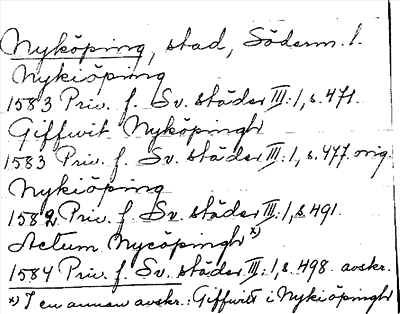 Nyköping, stad, Söderm. l.
Nykiöping
1583 Priv. f. Sv. städer III:1, s. 471.
Giffwit Nyköpingh
1583 Priv. f. Sv. städer III:1, s. 477. orig.
Nykiöping
1582 Priv. f. Sv. städer III:1, s. 491.
Actum Nycöpingh x)
1584 Priv. f. Sv. städer III:1, s. 498. avskr.
x) I en annan avskr.: Giffwitt i Nykiöpingh